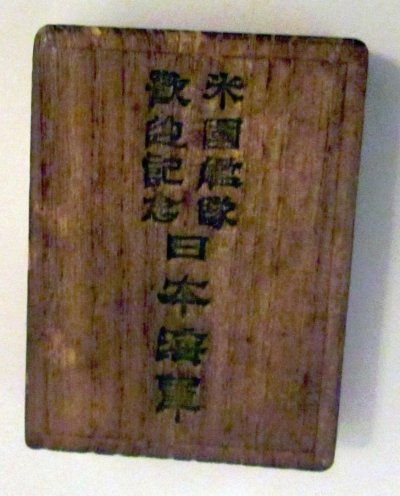 米國艦隊
歡迎記念
日本海軍